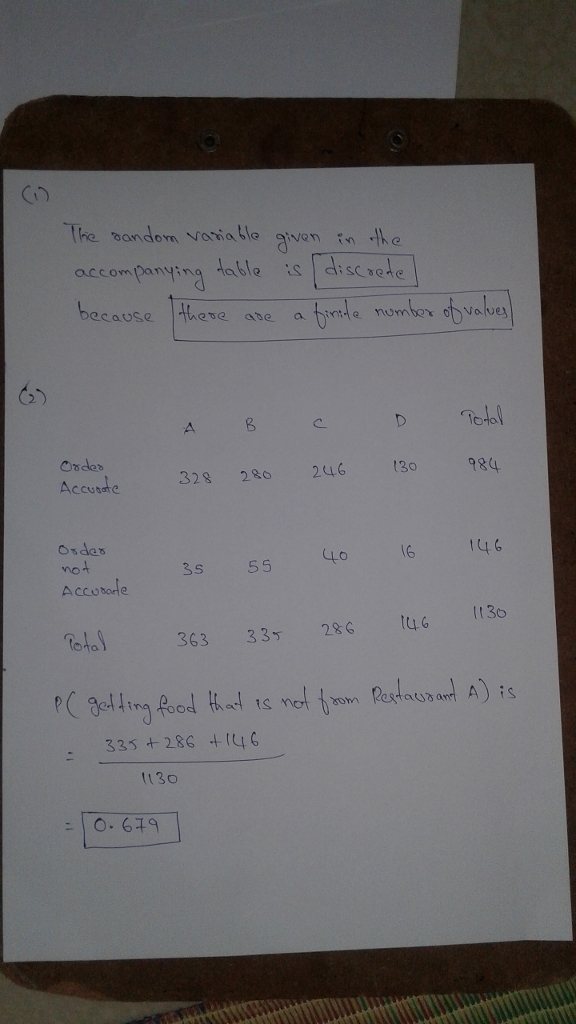 (1)
The random variable given in the
accompanying table is discrete
because there are a finite number of values
(2)
A B C D Total
Order
Accurate 328 280 246 130 984
Order
not
Accurate 35 55 40 16 146
Total 363 335 286 146 1130
P( getting food that is not from Restaurant A) is
= 335 + 286 + 146
1130
= 0.679